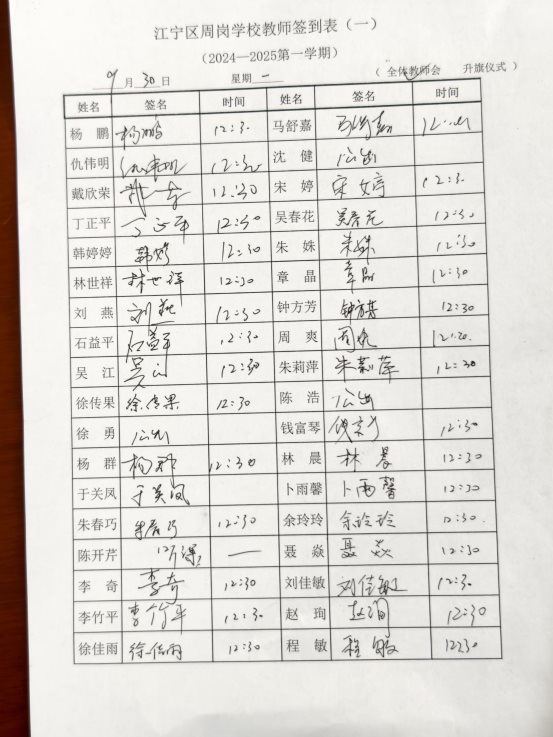 江宁区周岗学校教师签到表（一）
（2024—2025第一学期）
9月30日 星期一 （全体教师会 升旗仪式）
姓名 签名 时间 姓名 签名 时间
杨 鹏 杨鹏 12:30 马舒嘉 马舒嘉
仇伟明 仇伟明 12:30 沈 健 公出
戴欣荣 12:30 宋 婷 宋婷 12:30
丁正平 丁正平 12:30 吴春花 吴春花 12:30
韩婷婷 韩婷 12:30 朱 姝 朱姝 12:30
林世祥 林世祥 12:30 章 晶 章晶 12:30
刘 燕 刘燕 12:30 钟方芳 钟方芳 12:30
石益平 石益平 12:30 周 爽 周爽 12:20
吴 江 吴江 12:30 朱莉萍 朱莉萍 12:30
徐传果 徐传果 12:30 陈 浩 公出
徐 勇 公出 钱富琴 12:30
杨 群 杨群 12:30 林 晨 林晨 12:30
于关凤 于关凤 卜雨馨 卜雨馨 12:30
朱春巧 朱春巧 12:30 余玲玲 余玲玲 12:30
陈开芹 — 聂 焱 聂焱 12:30
李 奇 李奇 12:30 刘佳敏 刘佳敏 12:30
李竹平 李竹平 12:30 赵 珣 赵珣 12:30
徐佳雨 徐佳雨 12:30 程 敏 程敏 12:30